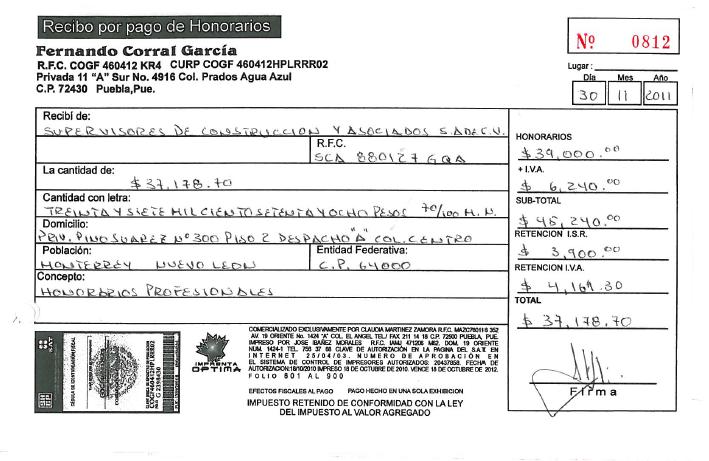 Recibo por pago de Honorarios
Fernando Corral García
R.F.C. COGF 460412 KR4 CURP COGF 460412HPLRRR02
Privada 11 "A" Sur No. 4916 Col. Prados Agua Azul
C.P. 72430 Puebla,Pue.
Nº 0812
Lugar:
Día Mes Año
30 11 2011
Recibí de:
SUPERVISORES DE CONSTRUCCION Y ASOCIADOS S.A DE C.V.
R.F.C.
SCA 880127 GQA
La cantidad de:
$ 37,178.70
Cantidad con letra:
TREINTA Y SIETE MIL CIENTO SETENTA Y OCHO PESOS 70/100 M.N.
Domicilio:
PRIV. PINO SUAREZ Nº 300 PISO 2 DESPACHO "A" COL. CENTRO
Población:
MONTERREY NUEVO LEON
Entidad Federativa:
C.P. 64000
Concepto:
HONORARIOS PROFESIONALES
HONORARIOS
$ 39,000.00
+ I.V.A.
$ 6,240.00
SUB-TOTAL
$ 45,240.00
RETENCION I.S.R.
$ 3,900.00
RETENCION I.V.A.
$ 4,161.30
TOTAL
$ 37,178.70
Firma
SAT
CÉDULA DE IDENTIFICACIÓN FISCAL
COGF460412HPLRRR02
IMPRENTA
OPTIMA
COMERCIALIZADO EXCLUSIVAMENTE POR CLAUDIA MARTINEZ ZAMORA R.F.C. MAZC760116 352
AV. 19 ORIENTE No. 1424 "A" COL. EL ANGEL TEL/ FAX 211 14 18 C.P. 72500 PUEBLA, PUE.
IMPRESO POR JOSE IBAÑEZ MORALES R.F.C. IAMJ 471206 M62, DOM. 19 ORIENTE
NUM. 1424-1 TEL. 756 37 68 CLAVE DE AUTORIZACIÓN EN LA PAGINA DEL S.A.T. EN
INTERNET 25/04/03. NUMERO DE APROBACIÓN EN
EL SISTEMA DE CONTROL DE IMPRESORES AUTORIZADOS: 20437858. FECHA DE
AUTORIZACION:18/10/2010 IMPRESO 18 DE OCTUBRE DE 2010. VENCE 18 DE OCTUBRE DE 2012.
FOLIO 801 AL 900
EFECTOS FISCALES AL PAGO PAGO HECHO EN UNA SOLA EXHIBICION
IMPUESTO RETENIDO DE CONFORMIDAD CON LA LEY
DEL IMPUESTO AL VALOR AGREGADO